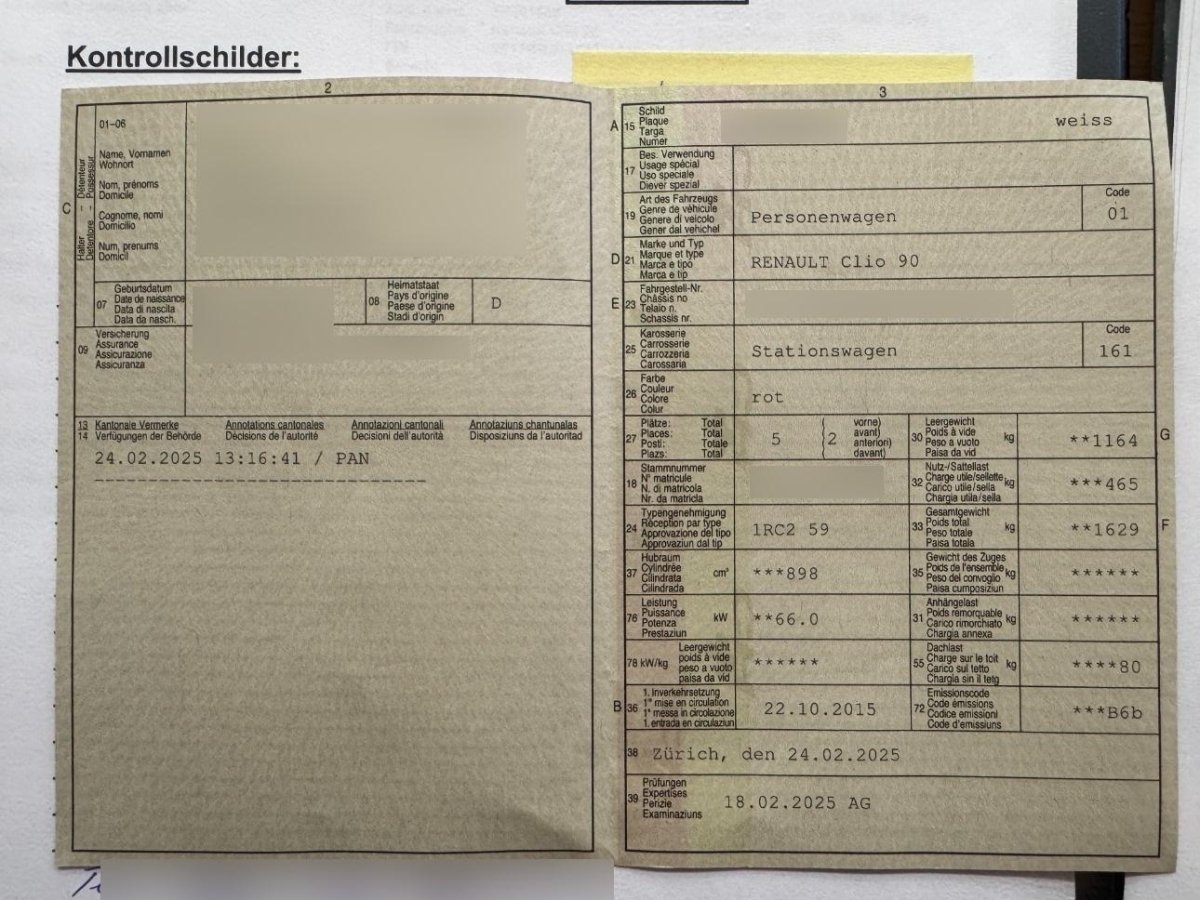 Kontrollschilder:
2
01–06
Name, Vornamen
Wohnort
Nom, prénoms
Domicile
Cognome, nomi
Domicilio
Num, prenums
Domicil
C
Halter – Détenteur
Detentore – Possessur
07
Geburtsdatum
Date de naissance
Data di nascita
Data da nasch.
08
Heimatstaat
Pays d'origine
Paese d'origine
Stadi d'origin
D
09
Versicherung
Assurance
Assicurazione
Assicuranza
13 Kantonale Vermerke Annotations cantonales Annotazioni cantonali Annotaziuns chantunalas
14 Verfügungen der Behörde Décisions de l'autorité Decisioni dell'autorità Disposiziuns da l'autoritad
24.02.2025 13:16:41 / PAN
3
A 15
Schild
Plaque
Targa
Numer
weiss
17
Bes. Verwendung
Usage spécial
Uso speciale
Diever spezial
19
Art des Fahrzeugs
Genre de véhicule
Genere di veicolo
Gener dal vehichel
Personenwagen
Code
01
D 21
Marke und Typ
Marque et type
Marca e tipo
Marca e tip
RENAULT Clio 90
E 23
Fahrgestell-Nr.
Châssis no
Telaio n.
Schassis nr.
25
Karosserie
Carrosserie
Carrozzeria
Carossaria
Stationswagen
Code
161
26
Farbe
Couleur
Colore
Colur
rot
27
Plätze: Total
Places: Total
Posti: Totale
Plazs: Total
5
( vorne)
( 2 avant)
( anteriori)
( davant)
30
Leergewicht
Poids à vide
Peso a vuoto
Paisa da vid
kg
**1164
G
18
Stammnummer
N° matricule
N. di matricola
Nr. da matricla
32
Nutz-/Sattellast
Charge utile/sellette
Carico utile/sella
Chargia utila/sella
kg
***465
24
Typengenehmigung
Réception par type
Approvazione del tipo
Approvaziun dal tip
1RC2 59
33
Gesamtgewicht
Poids total
Peso totale
Paisa totala
kg
**1629
F
37
Hubraum
Cylindrée
Cilindrata
Cilindrada
cm³
***898
35
Gewicht des Zuges
Poids de l'ensemble
Peso del convoglio
Paisa cumposiziun
kg
******
76
Leistung
Puissance
Potenza
Prestaziun
kW
**66.0
31
Anhängelast
Poids remorquable
Carico rimorchiato
Chargia annexa
kg
******
78 kW/kg
Leergewicht
poids à vide
peso a vuoto
paisa da vid
******
55
Dachlast
Charge sur le toit
Carico sul tetto
Chargia sin il tetg
kg
****80
B 36
1. Inverkehrsetzung
1re mise en circulation
1a messa in circolazione
1. entrada en circulaziun
22.10.2015
72
Emissionscode
Code émissions
Codice emissioni
Code d'emissiuns
***B6b
38
Zürich, den 24.02.2025
39
Prüfungen
Expertises
Perizie
Examinaziuns
18.02.2025 AG